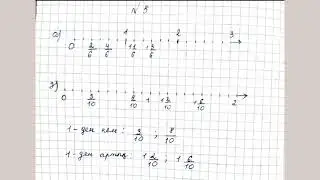 № 5
а)
1 2 3
0 2/6 4/6 1 1/6 1 3/6
0 3/10 8/10 1 1 2/10 1 6/10 2
1-ден кем: 3/10 ; 8/10
1-ден артық: 1 2/10, 1 6/10